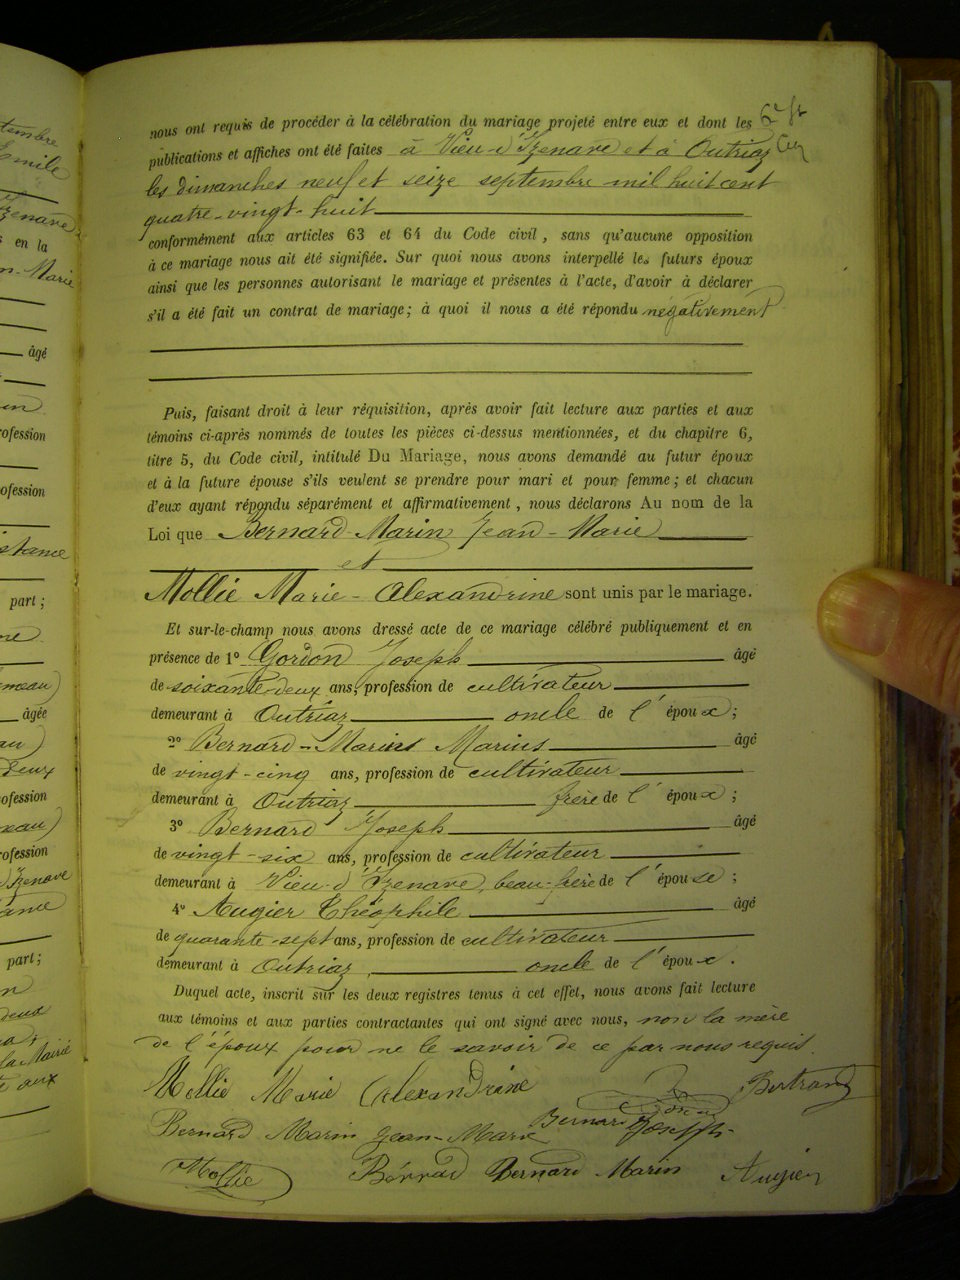 nous ont requis de procéder à la célébration du mariage projeté entre eux et dont les
publications et affiches ont été faites à Vieu-d'Izenave et à Outriaz
les dimanches neuf et seize septembre mil huit cent
quatre-vingt-huit
conformément aux articles 63 et 64 du Code civil, sans qu'aucune opposition
à ce mariage nous ait été signifiée. Sur quoi nous avons interpellé les futurs époux
ainsi que les personnes autorisant le mariage et présentes à l'acte, d'avoir à déclarer
s'il a été fait un contrat de mariage; à quoi il nous a été répondu négativement
Puis, faisant droit à leur réquisition, après avoir fait lecture aux parties et aux
témoins ci-après nommés de toutes les pièces ci-dessus mentionnées, et du chapitre 6,
titre 5, du Code civil, intitulé Du Mariage, nous avons demandé au futur époux
et à la future épouse s'ils veulent se prendre pour mari et pour femme; et chacun
d'eux ayant répondu séparément et affirmativement, nous déclarons Au nom de la
Loi que Bernard-Marin Jean-Marie
et
Mollie Marie-Alexandrine sont unis par le mariage.
Et sur-le-champ nous avons dressé acte de ce mariage célébré publiquement et en
présence de 1º Gordon Joseph âgé
de soixante-deux ans, profession de cultivateur
demeurant à Outriaz oncle de l'époux;
2º Bernard-Marins Marius âgé
de vingt-cinq ans, profession de cultivateur
demeurant à Outriaz frère de l'époux;
3º Bernard Joseph âgé
de vingt-six ans, profession de cultivateur
demeurant à Vieu-d'Izenave, beau-frère de l'épouse;
4º Augier Théophile âgé
de quarante-sept ans, profession de cultivateur
demeurant à Outriaz, oncle de l'époux.
Duquel acte, inscrit sur les deux registres tenus à cet effet, nous avons fait lecture
aux témoins et aux parties contractantes qui ont signé avec nous, non la mère
de l'époux pour ne le savoir de ce par nous requis.
Mollie Marie Alexandrine Bertrand
Bernard Marin Jean-Marie Bernard Joseph
Mollie Bernard Marin Augier